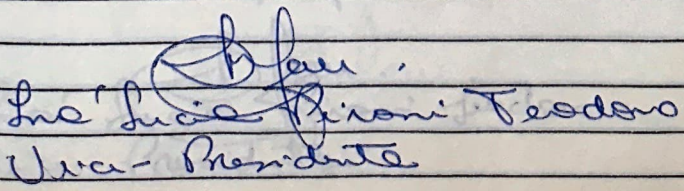 Lucia Pironi Teodoro
Vice-Presidente